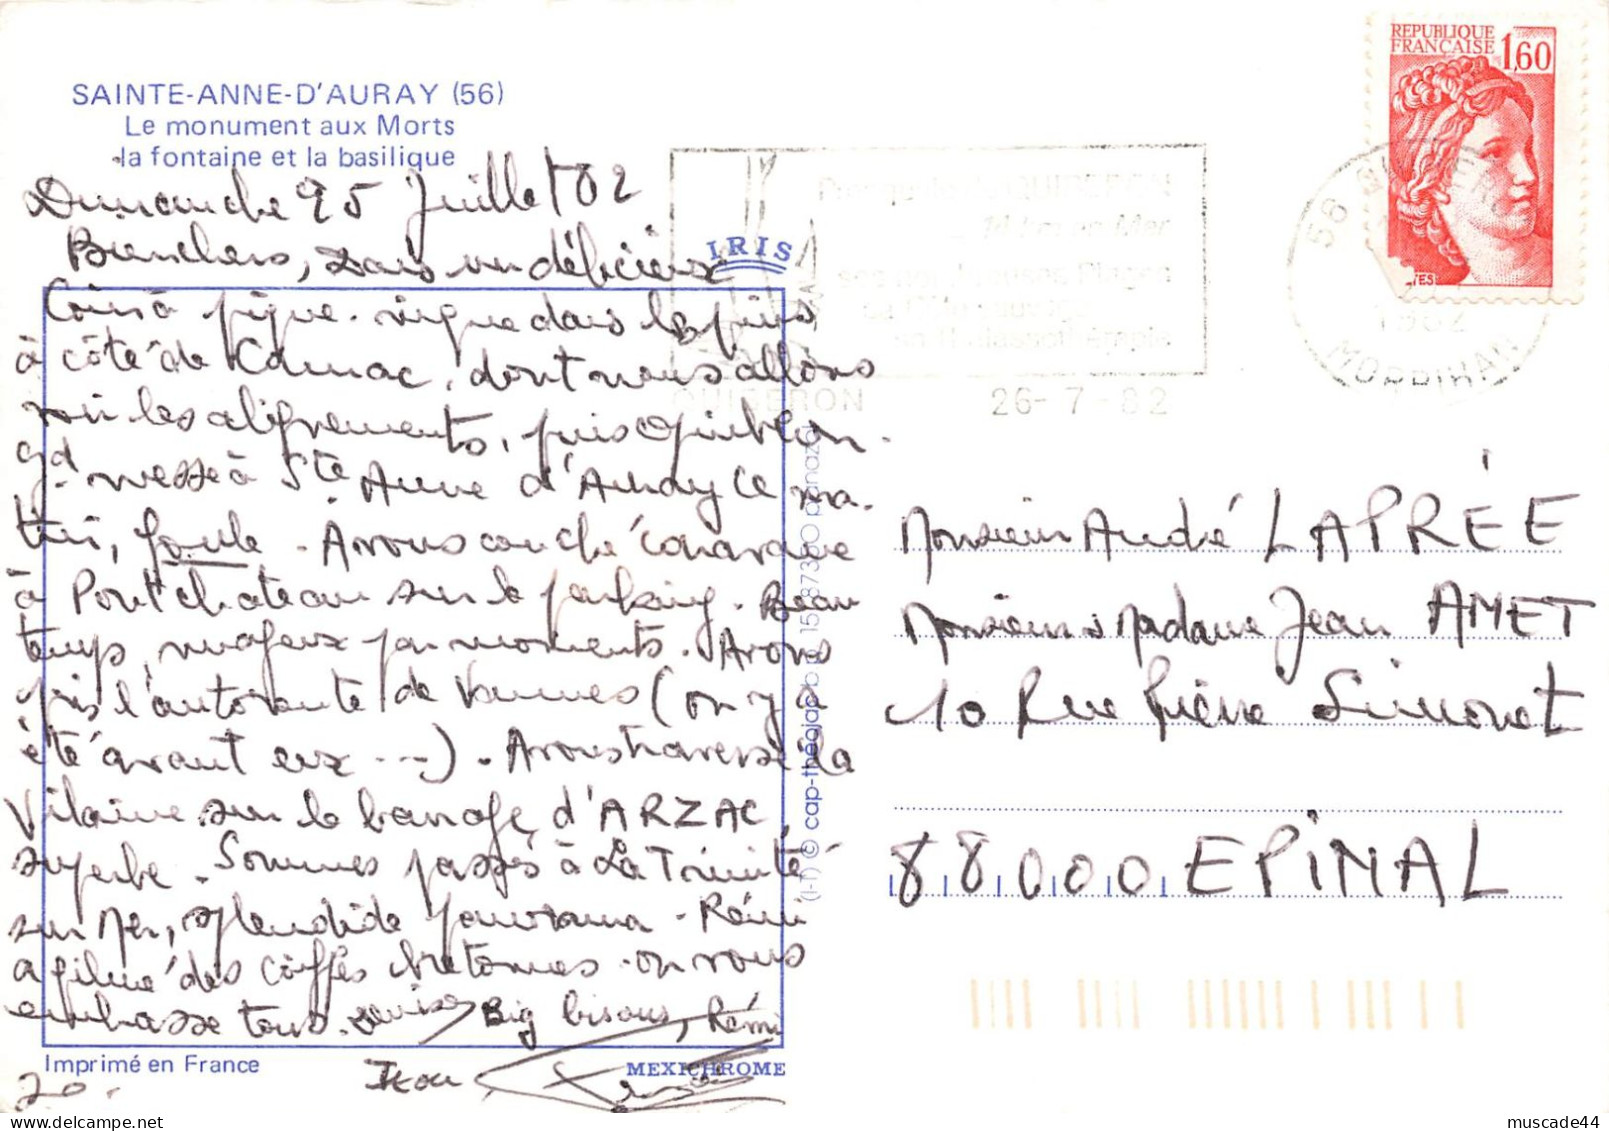 SAINTE-ANNE-D'AURAY (56)
Le monument aux Morts
la fontaine et la basilique
Dimanche 25 Juillet 82
Biens chers, dans un délicieux
Coin à pique-nique dans les pins
à côté de Carnac, dont nous allons
voir les alignements, puis Quiberon.
gd messe à Ste Anne d'Auray ce ma-
tin, foule. Avons couché caravane
à Pontchateau sur le parking. Beau
temps, nuageux par moments. Avons
pris l'autoroute de Vannes (on y a
été avant eux ---). Avons traversé la
Vilaine sur le barrage d'ARZAC
superbe. Sommes passés à La Trinité
sur Mer, splendide panorama. Rémi
a filmé des coiffes bretonnes. on vous
embrasse tous. Denise Big bisous, Rémi
Jean
20.
Imprimé en France
MEXICHROME
IRIS
(I-T) © cap-théojac b.p. 15 87350 panazol
REPUBLIQUE
FRANÇAISE 1,60
Presqu'île de QUIBERON
14 km en Mer
ses nombreuses Plages
sa Côte sauvage
son Thalassothérapie
QUIBERON 26-7-82
56 QUIBERON
1982
MORBIHAN
Monsieur André LAPRÉE
Monsieur & Madame Jean AMET
10 Rue Pierre Simonet
88000 EPINAL
muscade44